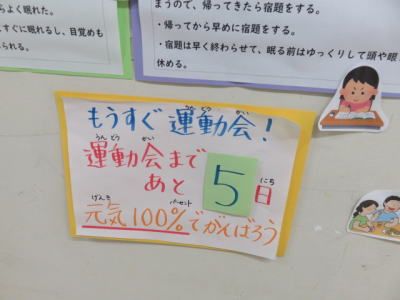 らよく眠れた。
すぐに眠れるし、目覚めも
られる。
まうので、帰ってきたら宿題をする。
・帰ってから早めに宿題をする。
・宿題は早く終わらせて、眠る前はゆっくりして頭や眼
休める。
もうすぐ運動会！
運動会まで
あと5日
元気100%でがんばろう